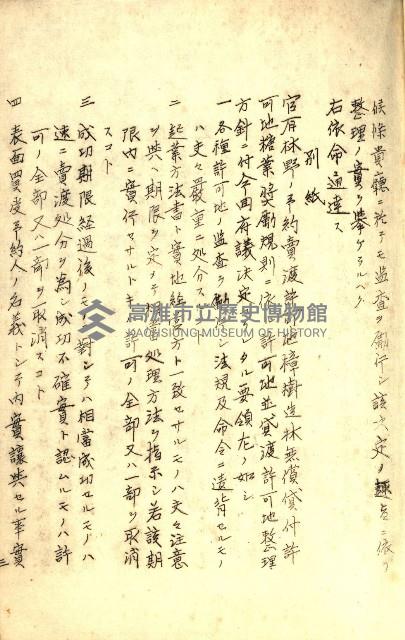 候條貴廳ニ於テモ監査ヲ勵行シ該方定ノ趣旨ニ依リ
整理ノ實ヲ擧ケラルヘク
右依命通達ス
別紙
官有林野ノ予約賣渡許可地樟樹造林無償貸付許
可地糖業奬勵規則ニ依ル許可地並貸渡許可地整理
方針ニ付今回府議決定シタル要領左ノ如シ
一 各種許可地ノ監査ヲ勵 法規及命令ニ違背セルモノ
ハ夫々嚴重ニ処分スコト
二 起業方法書ト實地経営方ト一致セサルモノハ夫々注意
シ共ハ期限ヲ定メテ 処理方法ヲ指示シ若該期
限内ニ實行セサルトキ 許可ノ全部又ハ一部ヲ取消
スコト
三 成功期限経過後ノモ 對シテハ相當成功セルモノハ
速ニ賣渡処分ヲ為シ成功不確實ト認ムルモノハ許
可ノ全部又ハ一部ヲ取消スコト
四 表面買受予約人ノ名義トシテ内實讓與セル事實
三
高雄市立歷史博物館
KAOHSIUNG MUSEUM OF HISTORY